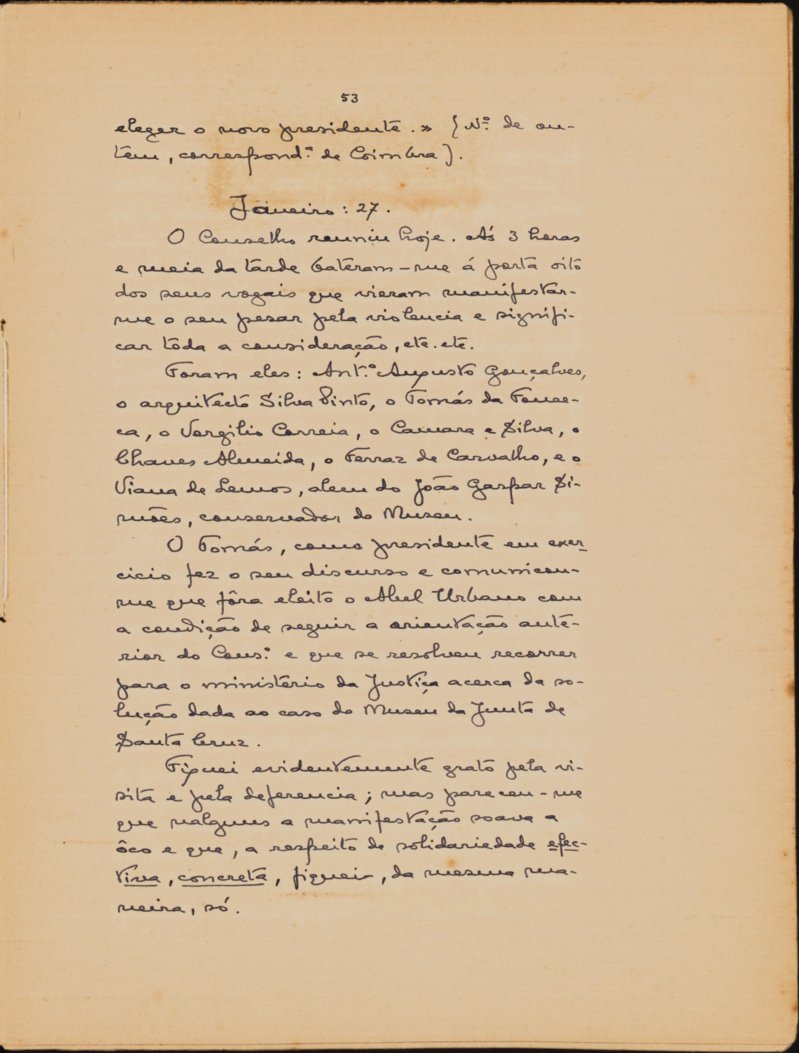 53
eleger o novo presidente. » [Nº. de on-
tem, correspond.ª de Coimbra].
Janeiro: 27.
O Conselho reuniu hoje. Ás 3 horas
e meia da tarde bateram-me á porta oito
dos seus vogais que vieram manifestar-
me o seu pesar pela violencia e signifi-
car tôda a consideração, etc. etc.
Foram eles: Ant.º Augusto Gonçalves,
o arquitecto Silva Pinto, o Tomás da Fonse-
ca, o Vergilio Correia, o Camara e Silva, o
Chaves Almeida, o Ferraz de Carvalho, e o
Viana de Lemos, alem do João Gaspar Si-
mões, conservador do Museu.
O Tomás, como presidente em exer-
cicio fez o seu discurso e comunicou-
me que fôra eleito o Abel Urbano com
a condição de seguir a orientação ante-
rior do Cons.º e que se resolveu recorrer
para o ministério da Justiça acerca da so-
lução dada ao caso do Museu da Junta de
Santa Cruz.
Fiquei evidentemente grato pela vi-
sita e pela deferencia; mas pareceu-me
que nalguns a manifestação soava a
ôco e que, a respeito de solidariedade efec-
tiva, concreta, fiquei, da mesma ma-
neira, só.